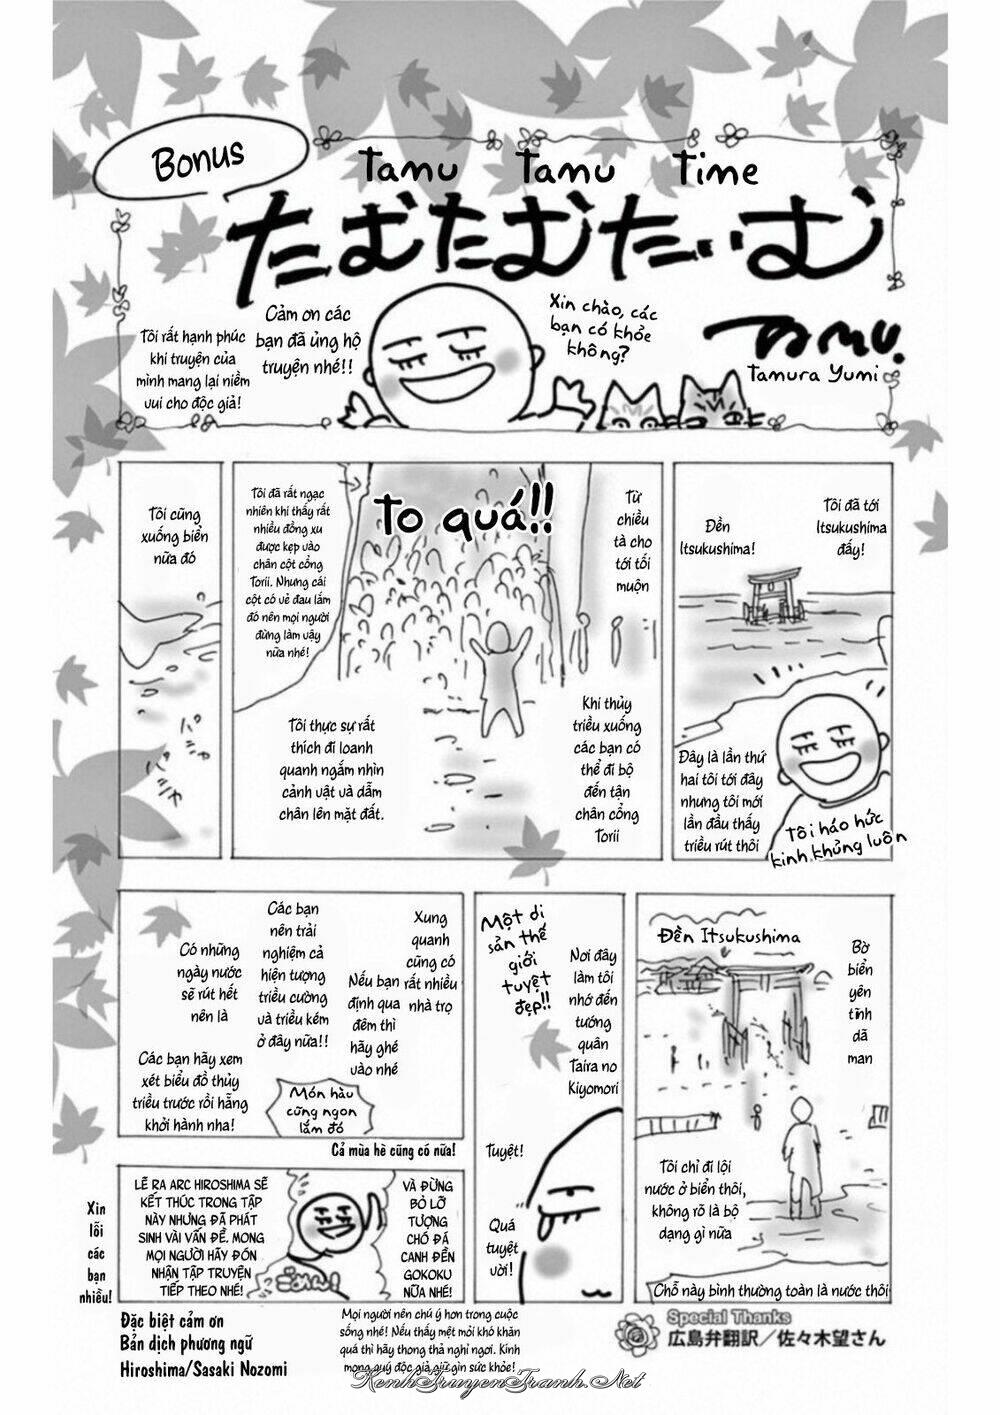 Bonus
Tamu Tamu time
たむたむたぃむ
Xin chào, các
bạn có khỏe
không?
TAMU.
Tamura Yumi
Cảm ơn các
bạn đã ủng hộ
truyện nhé!!
Tôi rất hạnh phúc
khi truyện của
mình mang lại niềm
vui cho độc giả!
Tôi đã tới
Itsukushima
đấy!
Đền
Itsukushima!
Đây là lần thứ
hai tôi tới đây
nhưng tôi mới
lần đầu thấy
triều rút thôi
Tôi háo hức
kinh khủng luôn
Từ
chiều
tà cho
tới tối
muộn
To quá!!
Tôi đã rất ngạc
nhiên khi thấy rất
nhiều đồng xu
được kẹp vào
chân cột cổng
Torii. Nhưng cái
cột có vẻ đau lắm
đó nên mọi người
đừng làm vậy
nữa nhé!
Khi thủy
triều xuống
các bạn có
thể đi bộ
đến tận
chân cổng
Torii
Tôi thực sự rất
thích đi loanh
quanh ngắm nhìn
cảnh vật và dẫm
chân lên mặt đất.
Tôi cũng
xuống biển
nữa đó
パシャ
パシャ
Đền Itsukushima
Bờ
biển
yên
tĩnh
dã
man
Tôi chỉ đi lội
nước ở biển thôi,
không rõ là bộ
dạng gì nữa
Chỗ này bình thường toàn là nước thôi
Một di
sản thế
giới
tuyệt
đẹp!!
Nơi đây
làm tôi
nhớ đến
tướng
quân
Taira no
Kiyomori
Tuyệt!
Quá
tuyệt
vời!
Xung
quanh
cũng có
rất nhiều
nhà trọ
Nếu bạn
định qua
đêm thì
hãy ghé
vào nhé
Các bạn
nên trải
nghiệm cả
hiện tượng
triều cường
và triều kém
ở đây nữa!!
Có những
ngày nước
sẽ rút hết
nên là
Các bạn hãy xem
xét biểu đồ thủy
triều trước rồi hẵng
khởi hành nha!
Món hàu
cũng ngon
lắm đó
Cả mùa hè cũng có nữa!
VÀ ĐỪNG
BỎ LỠ
TƯỢNG
CHÓ ĐÁ
CANH ĐỀN
GOKOKU
NỮA NHÉ!
LẼ RA ARC HIROSHIMA SẼ
KẾT THÚC TRONG TẬP
NÀY NHƯNG ĐÃ PHÁT
SINH VÀI VẤN ĐỀ. MONG
MỌI NGƯỜI HÃY ĐÓN
NHẬN TẬP TRUYỆN
TIẾP THEO NHÉ!
ごめん!
Xin
lỗi
các
bạn
nhiều!
Đặc biệt cảm ơn
Bản dịch phương ngữ
Hiroshima/Sasaki Nozomi
Mọi người nên chú ý hơn trong cuộc
sống nhé! Nếu thấy mệt mỏi khó khăn
quá thì hãy thong thả nghỉ ngơi. Kính
mong quý độc giả giữ gìn sức khỏe!
Special Thanks
広島弁翻訳／佐々木望さん
KenhTruyenTranh.Net